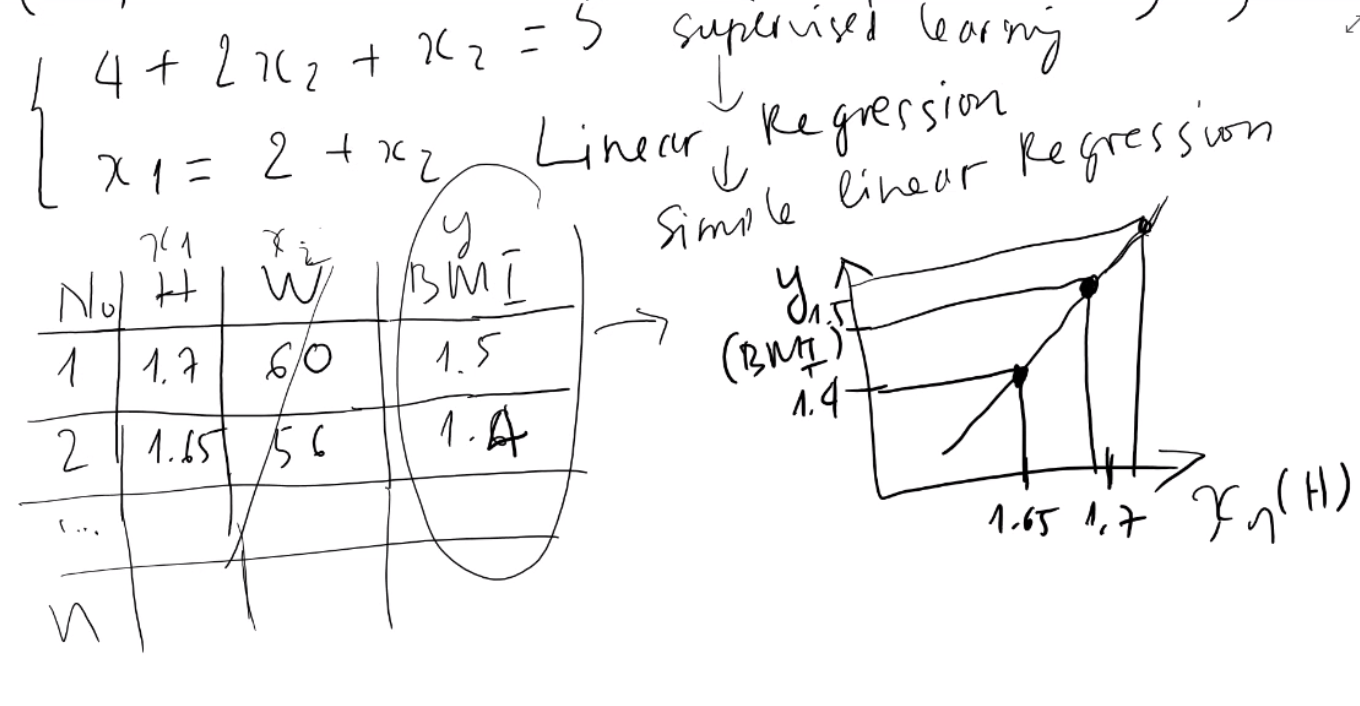 4 + 2x₂ + x₂ = 5
x₁ = 2 + x₂
supervised learning
↓
Linear Regression
↓
Simple linear Regression
x₁ x₂ y
No H W BMI
1 1.7 60 1.5
2 1.65 56 1.4
...
n
→
y
1.5
(BMI)
1.4
1.65 1.7
(H)